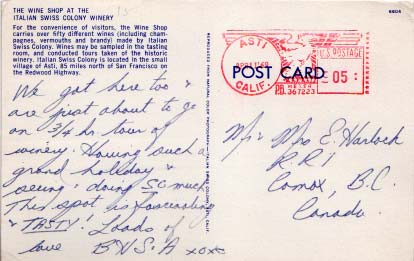 THE WINE SHOP AT THE
ITALIAN SWISS COLONY WINERY
For the convenience of visitors, the Wine Shop
carries over fifty different wines (including cham-
pagnes, vermouths and brandy) made by Italian
Swiss Colony. Wines may be sampled in the tasting
room, and conducted tours taken of the historic
winery. Italian Swiss Colony is located in the small
village of Asti, 85 miles north of San Francisco on
the Redwood Highway.
We got here too &
are just about to go
on 3/4 hr tour of
winery. Having such a
grand holiday &
seeing & doing so much
This spot is fascinating
& TASTY! Loads of
love B N S. A xoxo
POST CARD
ASTI
CALIF.
U.S. POSTAGE
05
P.B. METER
367223
Mr & Mrs E. Harlock
R.R.1
Comox, B.C.
Canada.